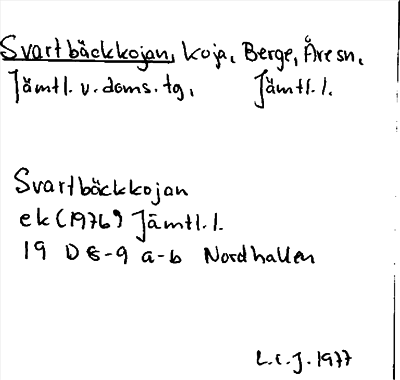 Svartbäckkojan, koja, Berge, Åre sn,
Jämtl. v. doms. tg, Jämtl. l.
Svartbäckkojan
ek (1976) Jämtl. l.
19 D 8-9 a-b Nordhallen
L.C.J. 1977